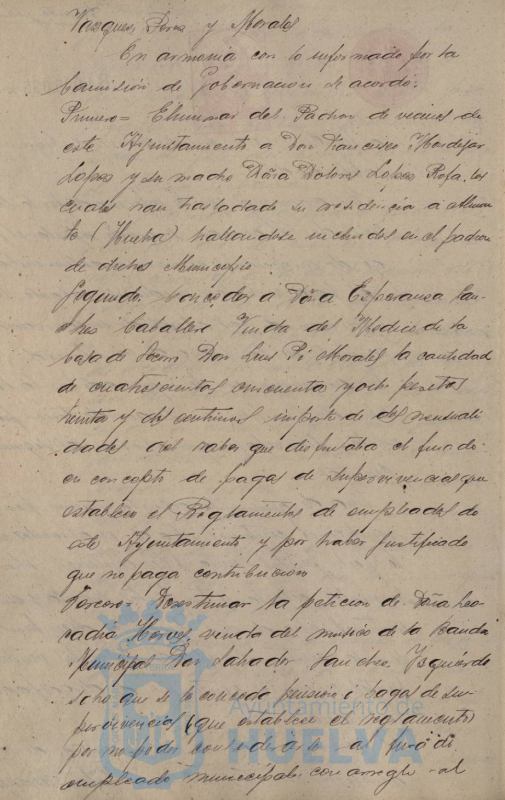 Vazquez, Perez y Morales
En armonia con lo informado por la
Comisión de Gobernación se acordó:
Primero= Eliminar del Padron de vecinos de
este Ayuntamiento a Don Francisco
Lopez y su madre Doña Dolores Lopez Rosa, los
cuales han trasladado su residencia a Almon-
te (Huelva) hallandose incluidos en el padron
de dichos Municipio.
Segundo. Conceder a Doña Esperanza San-
ches Caballero Viuda del Medico de la
Casa de Socorro Don Luis Pi Morales la cantidad
de cuatrocientas cincuenta y ocho pesetas
treinta y dos centimos importe de dos mensuali-
dades del haber que disfrutaba el finado
en concepto de pagas de supervivencias que
establece el Reglamento de empleados de
este Ayuntamiento y por haber justificado
que no paga contribución
Tercero= Desestimar la petición de Doña Leo-
cadia viuda del musico de la Banda
Municipal Don Salvador Sanchez Yzquierdo
que se le conceda pension o pagas de su-
pervivencias (que establece el reglamento)
por no poder considerarse al finado
empleado municipal con arreglo al
Ayuntamiento de
HUELVA